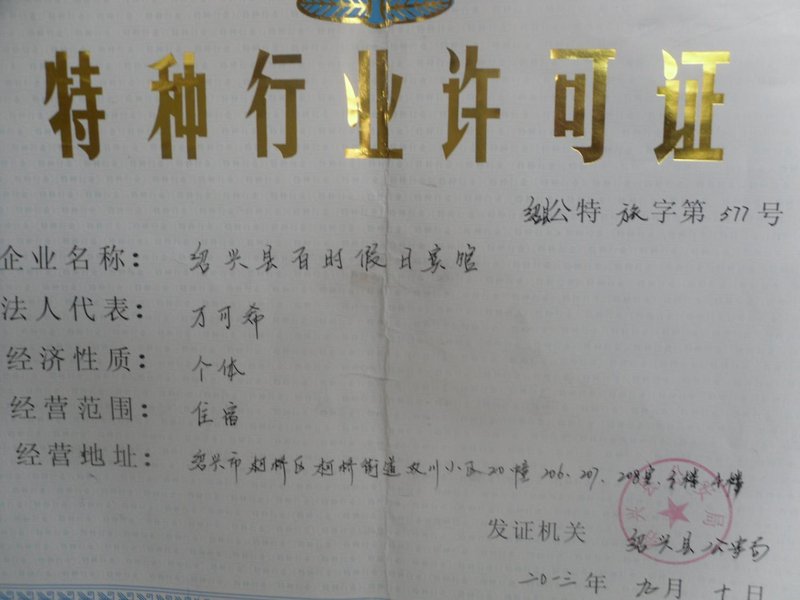 特种行业许可证
绍公特 旅 字第 577 号
企业名称：绍兴县百时假日宾馆
法人代表：万可希
经济性质：个体
经营范围：住宿
经营地址：绍兴市柯桥区柯桥街道双川小区20幢 206.207.208室
发证机关 绍兴县公安局
二〇一三年 九月 十日